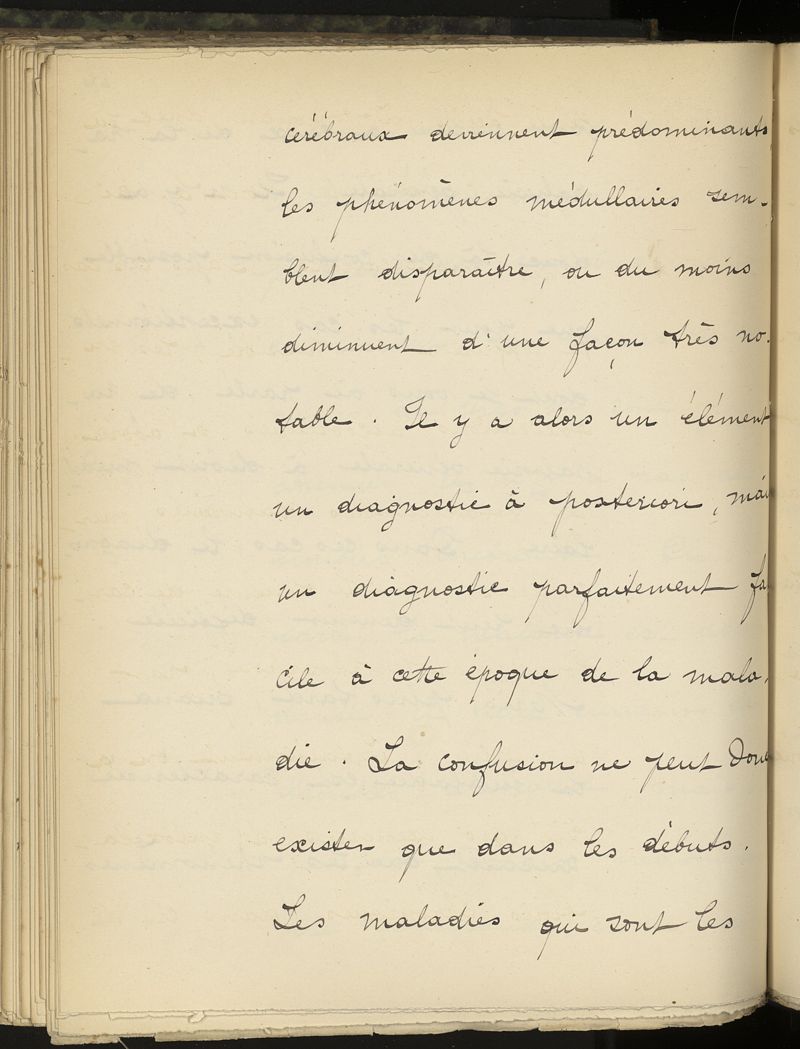 cérébraux deviennent prédominants,
les phénomènes médullaires sem-
blent disparaître, ou du moins
diminuent d'une façon très no-
table. Il y a alors un élément
un diagnostic à posteriori, mai
un diagnostic parfaitement fa
cile à cette époque de la mala-
die. La confusion ne peut donc
exister que dans les débuts.
Les maladies qui sont les